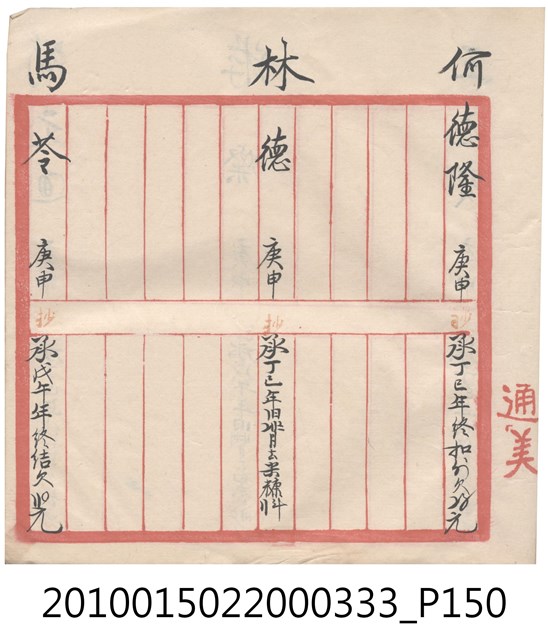 何德隆 庚申
抄
承丁巳年終扣外欠元
林德 庚申
抄
承丁巳年旧月去米糠斗
馬苓 庚申
抄
承戊午年終結欠元
通美
2010015022000333_P150